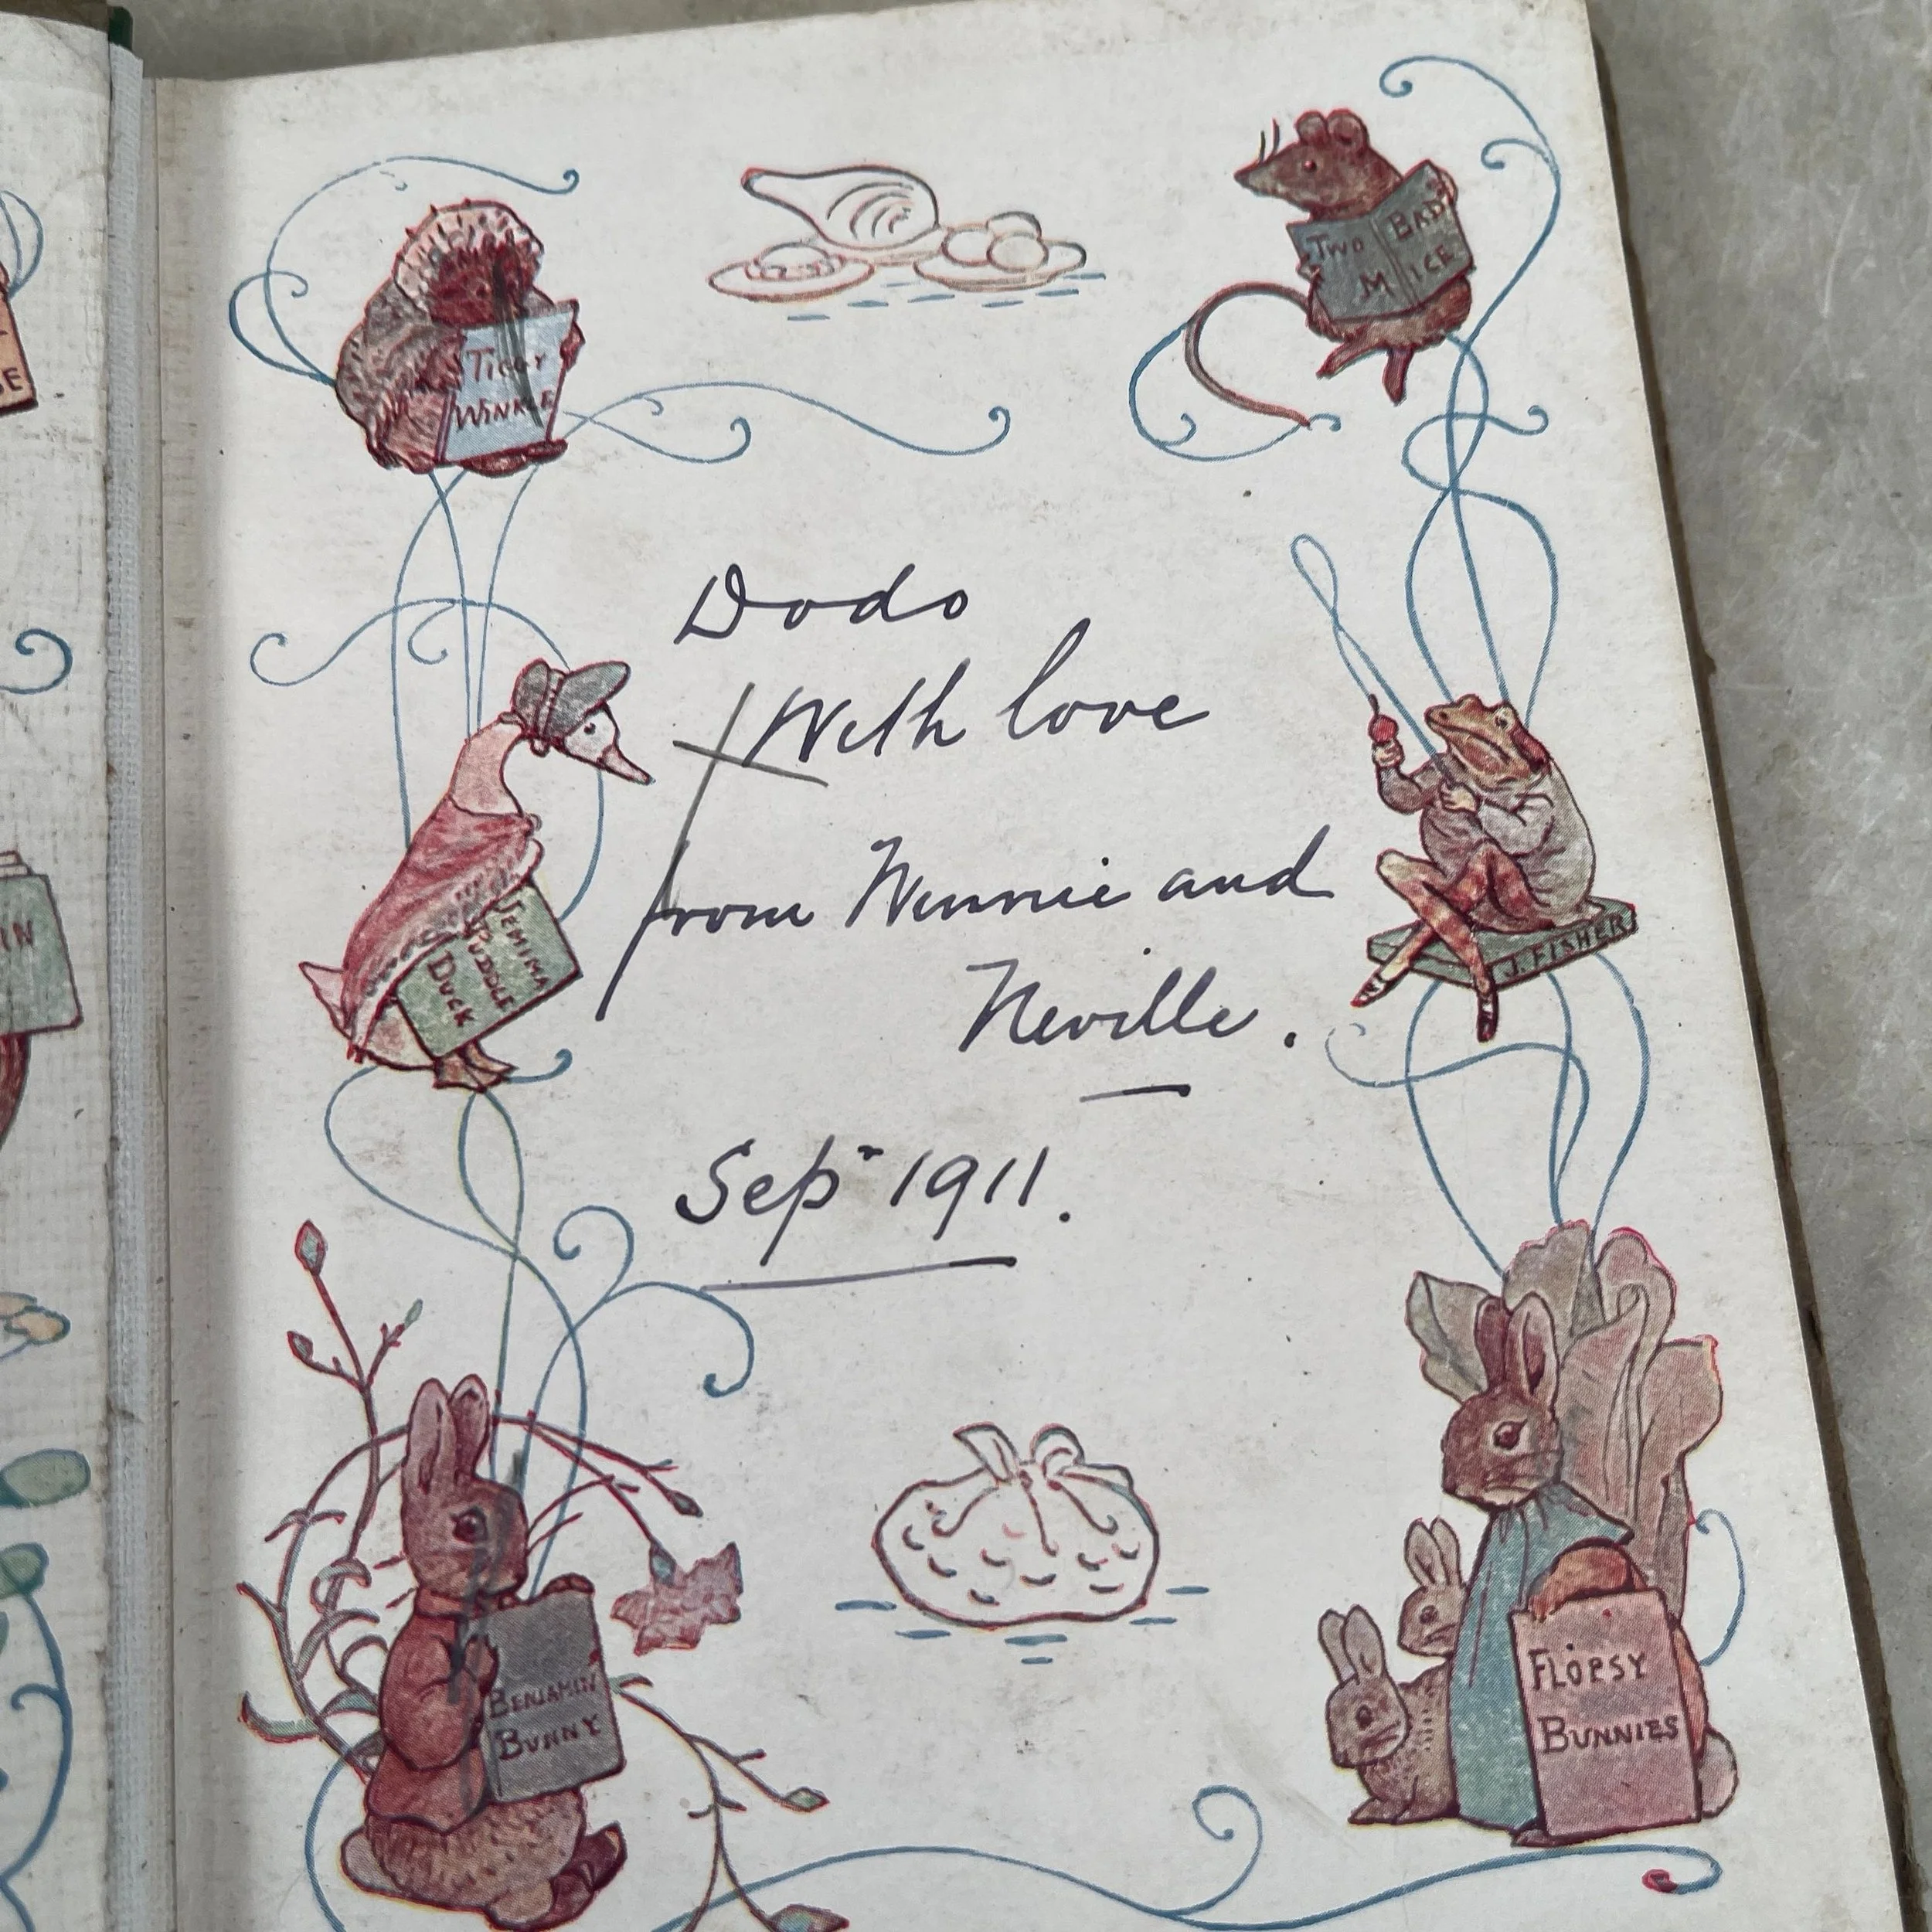 TIGGY
WINKLE
TWO BAD
MICE
SE
Dodo
With love
from Winnie and
Neville.
Sepr 1911.
IN
JEMIMA
PUDDLE
DUCK
J. FISHER
BENJAMIN
BUNNY
FLOPSY
BUNNIES